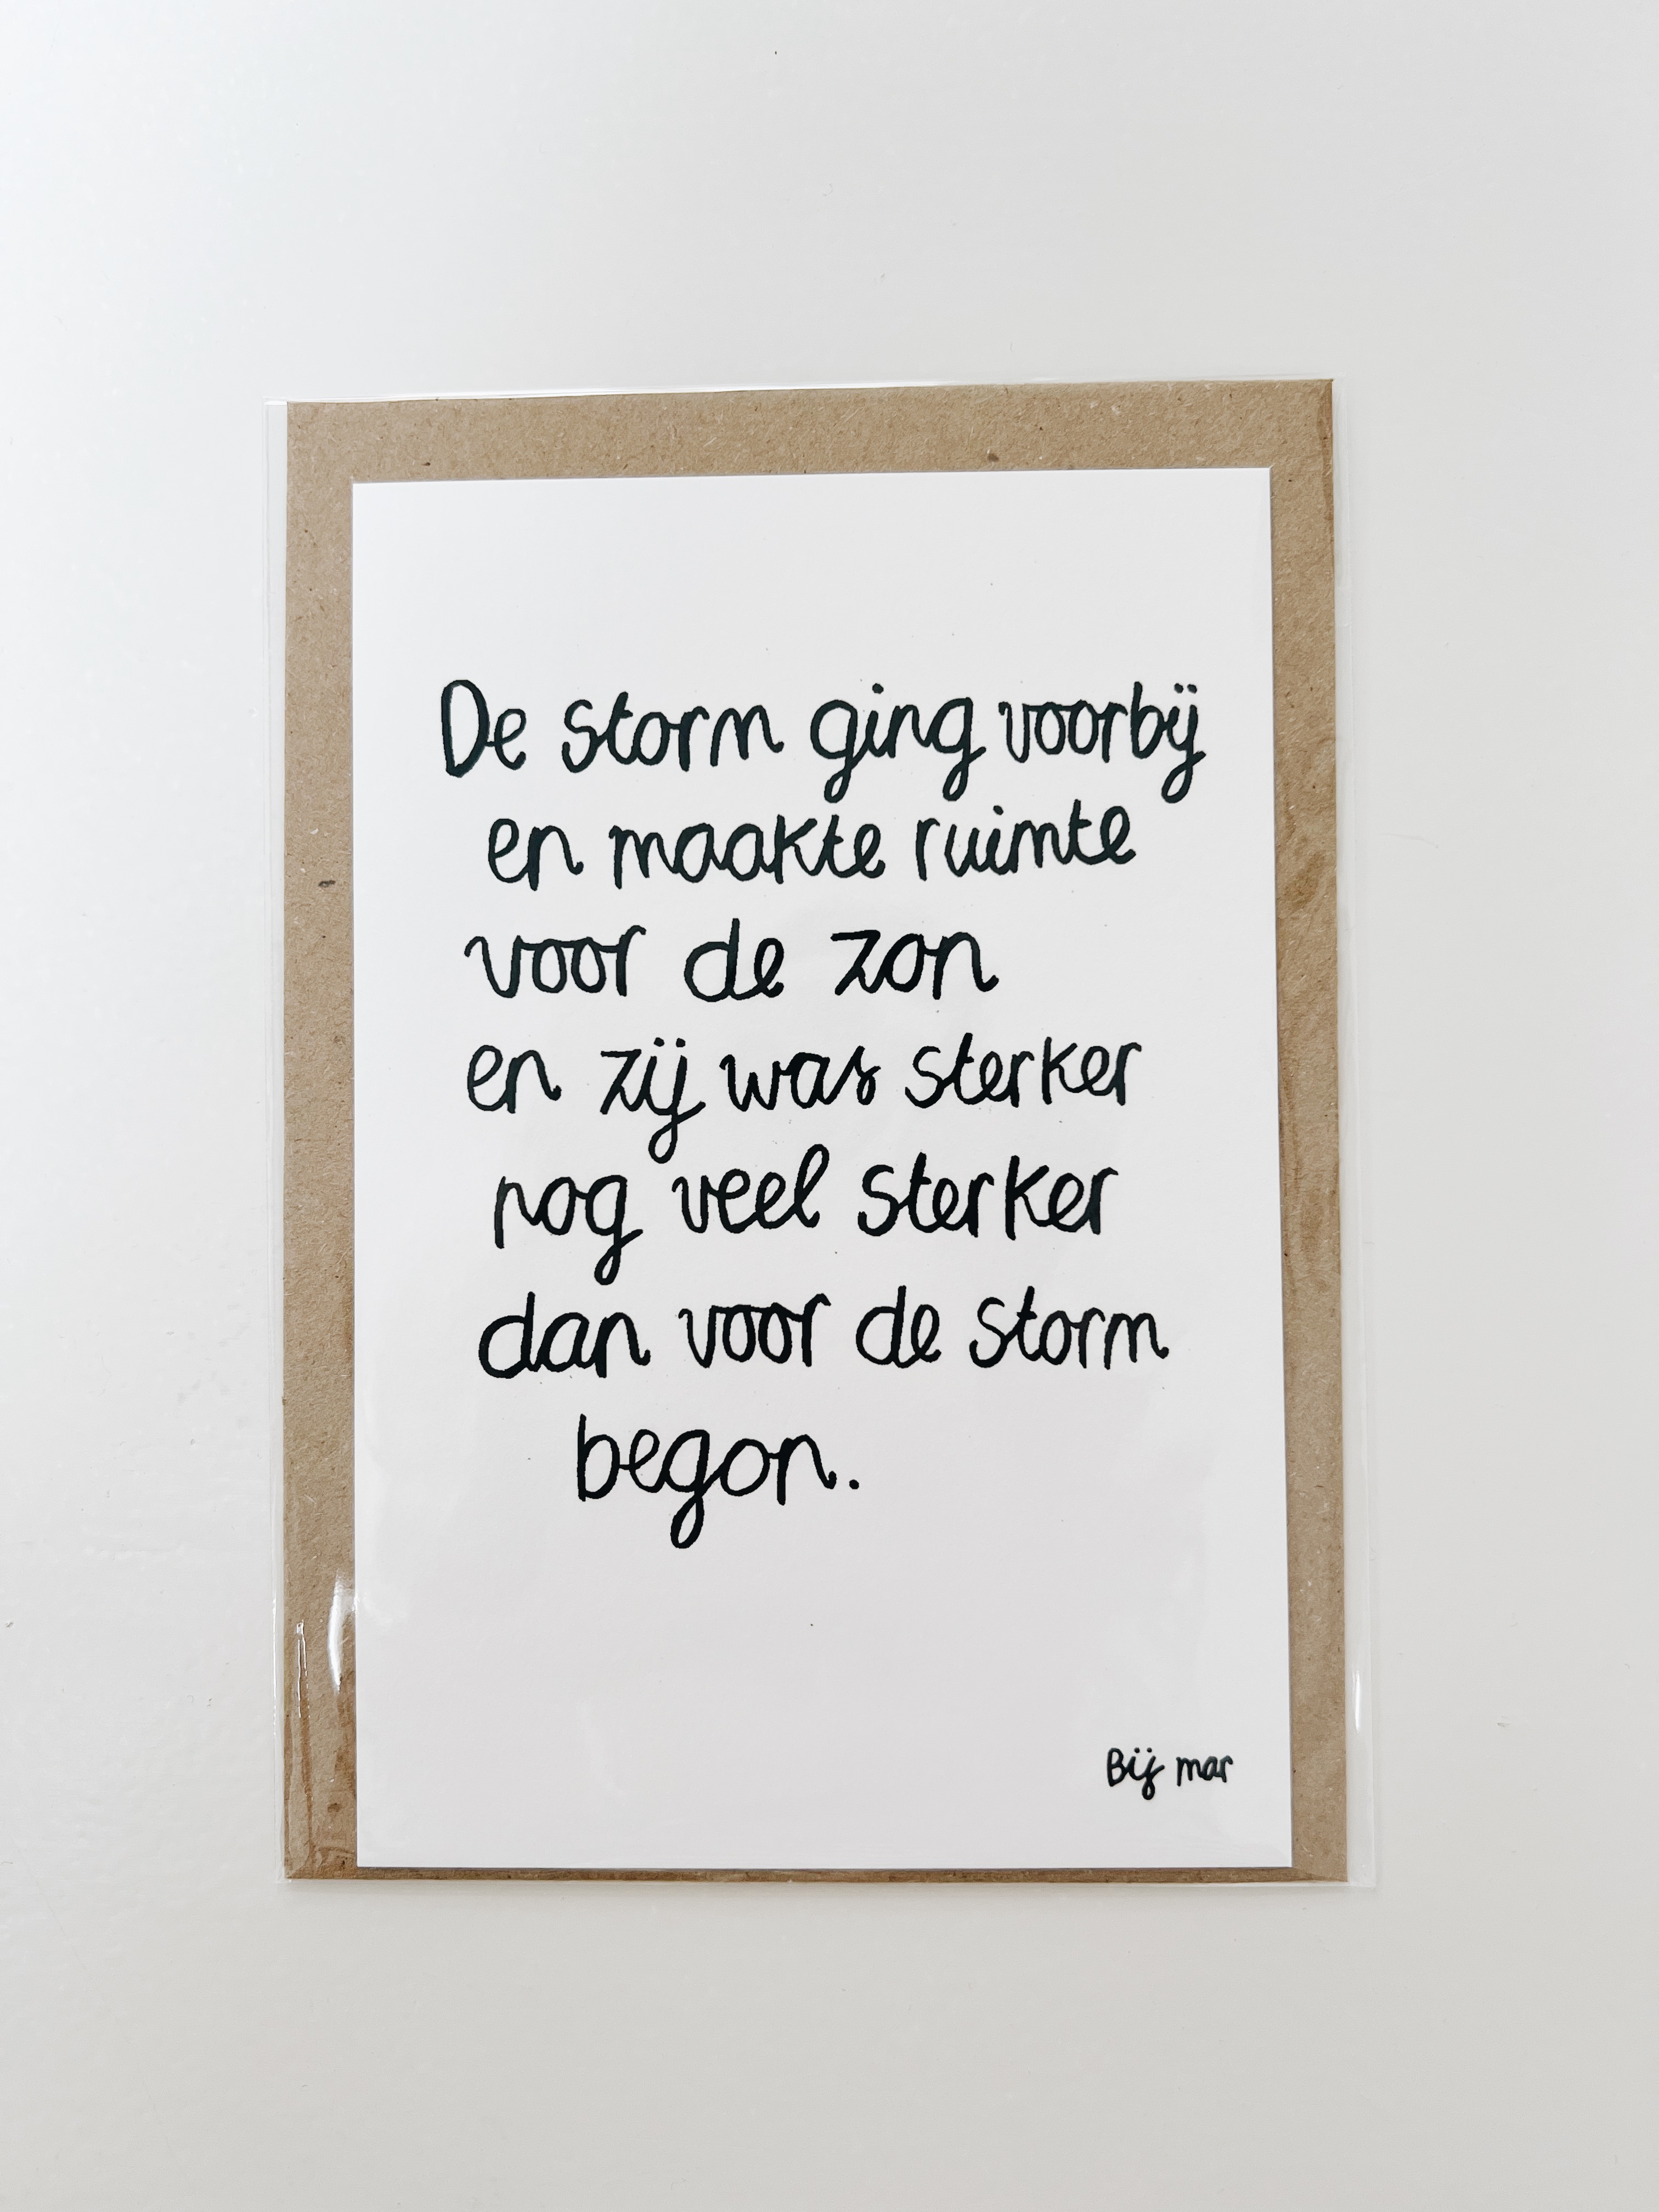 De storm ging voorbij
en maakte ruimte
voor de zon
en zij was sterker
nog veel sterker
dan voor de storm
begon.
Bij mar